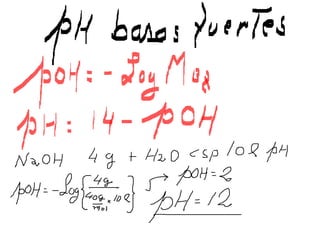 pH bases fuertes
pOH = - Log Mox
pH = 14 - pOH
NaOH 4 g + H2O csp 10 l pH
pOH = - Log { 4g / 40g/mol × 10 l } → pOH = 2
pH = 12